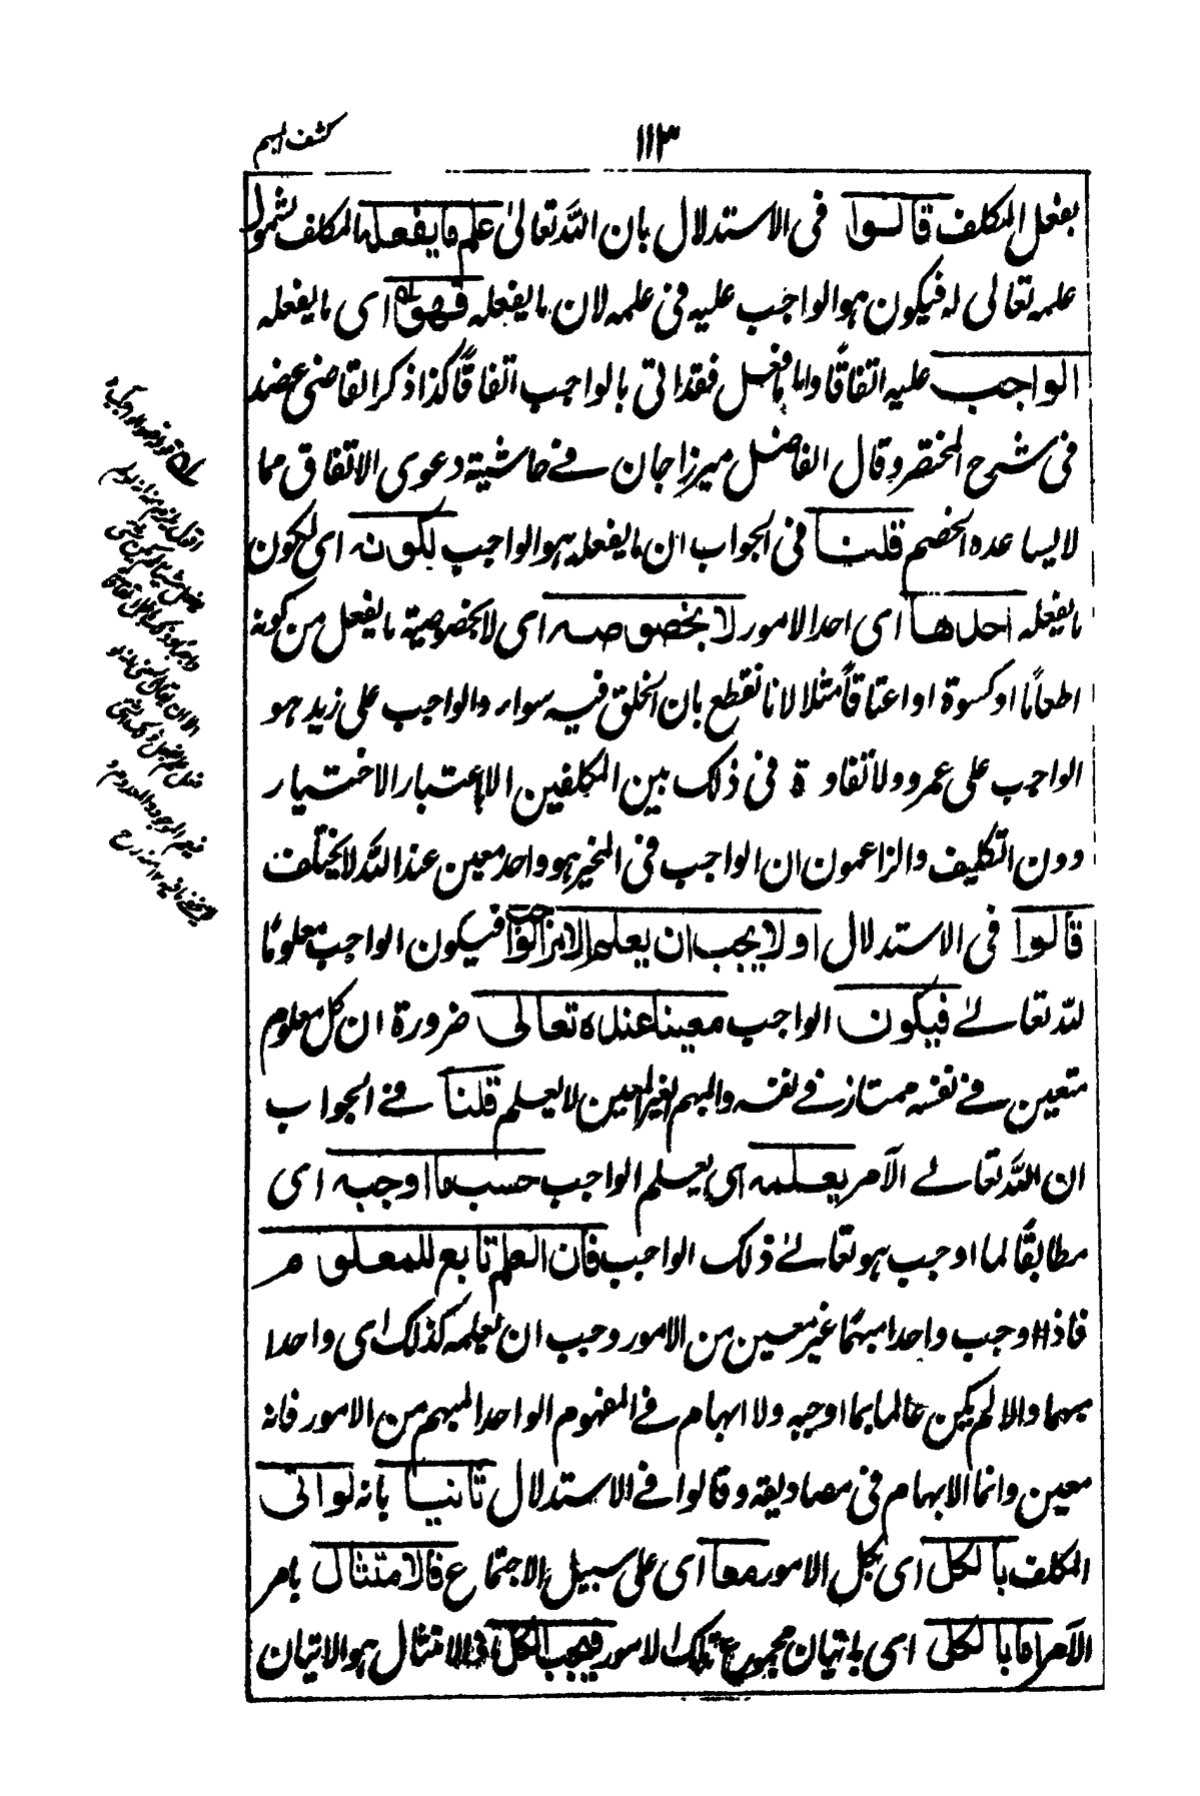 ١١٣
كشف المبهم
بفعل المكلف قالوا فى الاستدلال بان الله تعالىٰ علم ما يفعله المكلف لشمول
علمه تعالى له فيكون هو الواجب عليه فى علمه لان ما يفعله فهو اى ما يفعله
الواجب عليه اتفاقًا واما فعل فقد اتى بالواجب اتفاقًا كذا ذكر القاضى عضد
فى شرح المختصر وقال الفاضل ميرزا جان فے حاشيته دعوى الاتفاق مما
لا يساعده الخصم قلنا فى الجواب ان ما يفعله هو الواجب لكونه اى لكون
ما يفعله احدها اى احد الامور لا بخصوصه اى لا بخصوصية ما يفعل من كونه
اطعامًا او كسوة او اعتاقًا مثلا لانا نقطع بان الخلق فيه سواء والواجب على زيد هو
الواجب على عمرو ولا تفاوة فى ذلك بين المكلفين الا باعتبار الاختيار
دون التكليف والزاعمون ان الواجب فى المخير هو واحد معين عند الله لا يختلف
قالوا فى الاستدلال اولا يجب ان يعلم الامر الواجب فيكون الواجب معلومًا
لله تعالےٰ فيكون الواجب معينا عنده تعالى ضرورة ان كل معلوم
متعين فے نفسه ممتاز فے نفسه والمبهم الغير المعين لا يعلم قلنا فے الجواب
ان الله تعالےٰ الآمر يعلمه اى يعلم الواجب حسب ما اوجبه اى
مطابقًا لما اوجب هو تعالےٰ ذلك الواجب فان العلم تابع للمعلوم
فاذا اوجب واحدا مبهمًا غير معين من الامور وجب ان يعلمه كذلك اى واحدا
مبهما والا لم يكن عالما بما اوجبه ولا ابهام فے المفهوم الواحد المبهم من الامور فانه
معين وانما الابهام فى مصاديقه وقالوا فے الاستدلال ثانيا بانه لو اتى
المكلف بالكل اى بكل الامور معا اى على سبيل الاجتماع فالامتثال بامر
الآمر اما بالكل اى باتيان مجموع تلك الامور فيجب الكل اذ الامتثال هو الاتيان